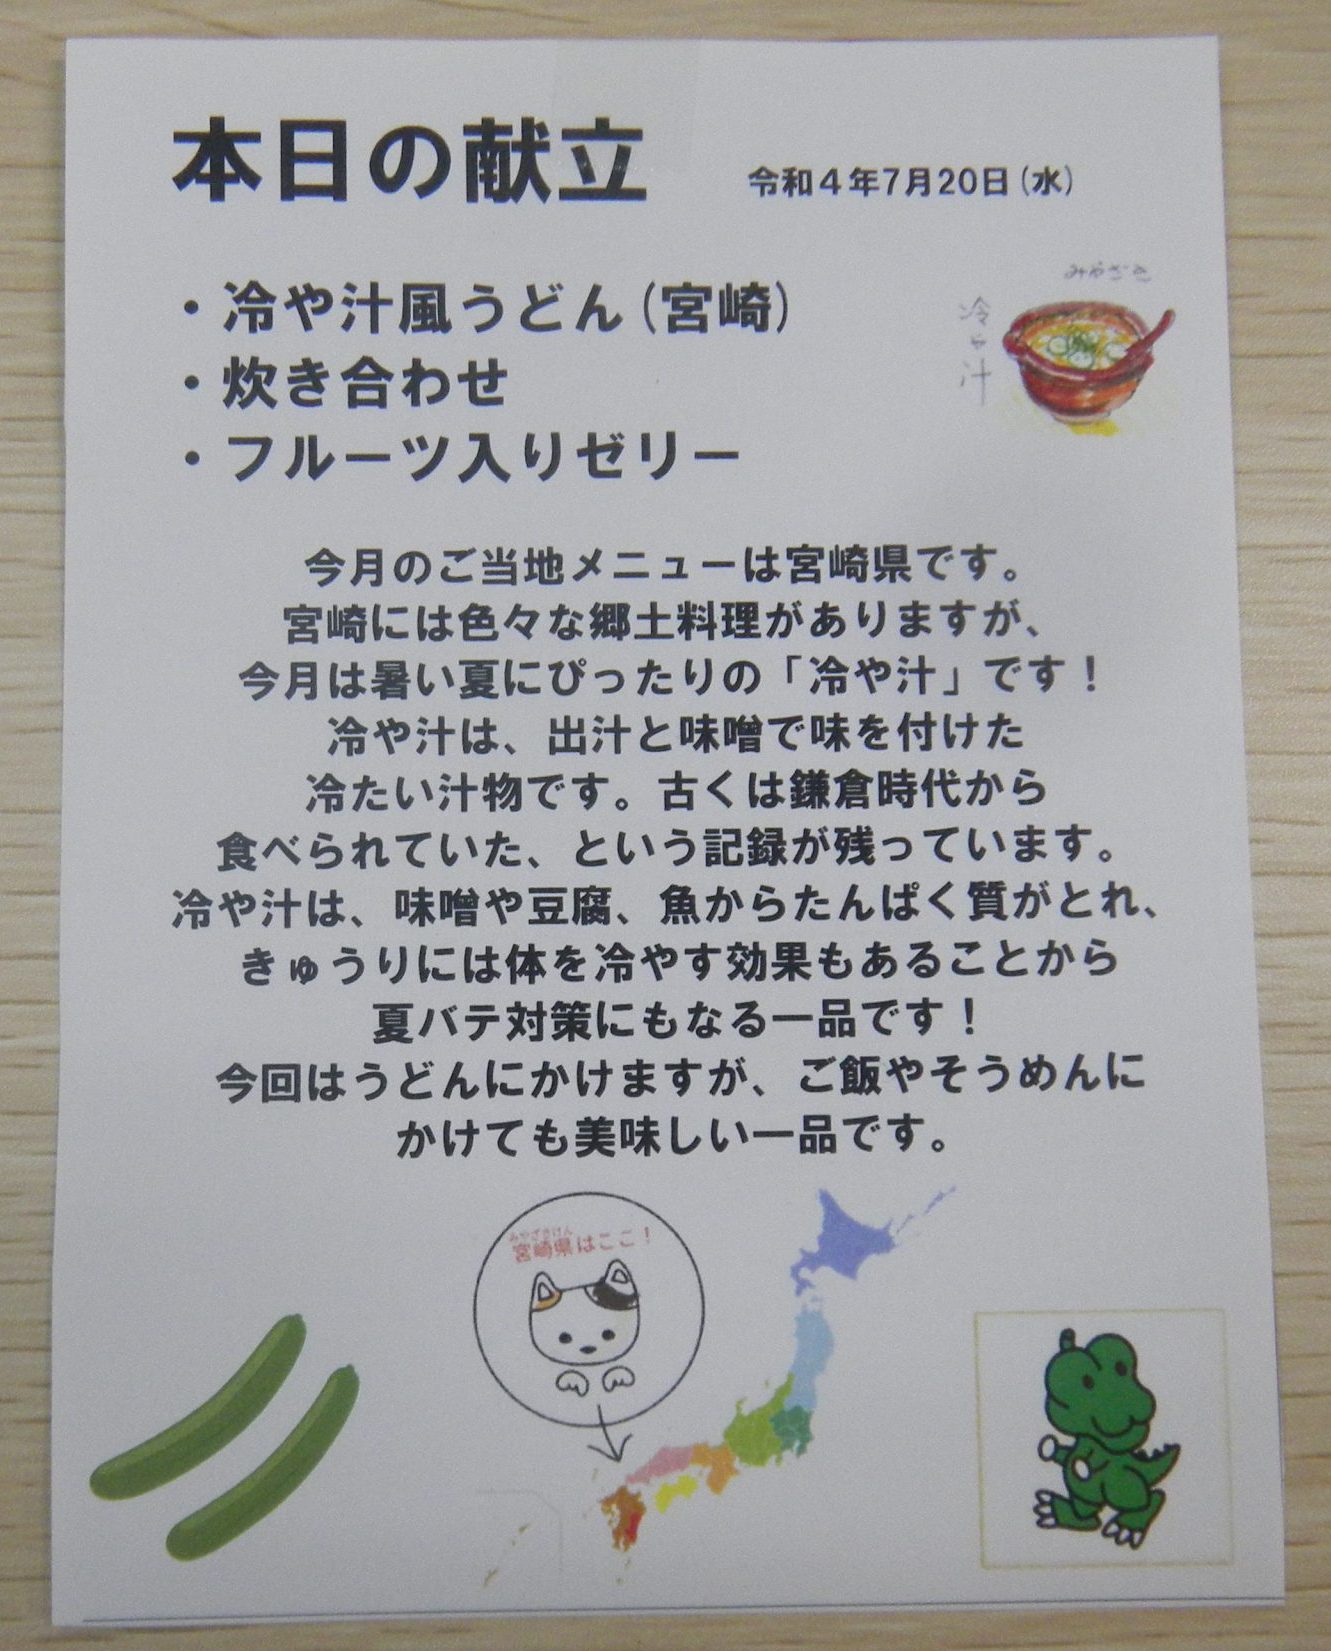 本日の献立
令和4年7月20日(水)
・冷や汁風うどん(宮崎)
・炊き合わせ
・フルーツ入りゼリー
みやざき
冷や汁
今月のご当地メニューは宮崎県です。
宮崎には色々な郷土料理がありますが、
今月は暑い夏にぴったりの「冷や汁」です！
冷や汁は、出汁と味噌で味を付けた
冷たい汁物です。古くは鎌倉時代から
食べられていた、という記録が残っています。
冷や汁は、味噌や豆腐、魚からたんぱく質がとれ、
きゅうりには体を冷やす効果もあることから
夏バテ対策にもなる一品です！
今回はうどんにかけますが、ご飯やそうめんに
かけても美味しい一品です。
みやざきけん
宮崎県はここ！